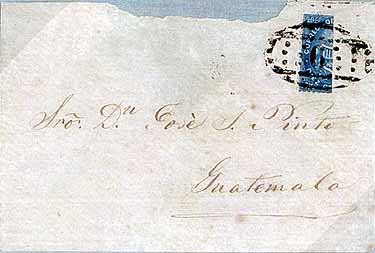 Srõ. Dn José S. Pinto
Guatemala